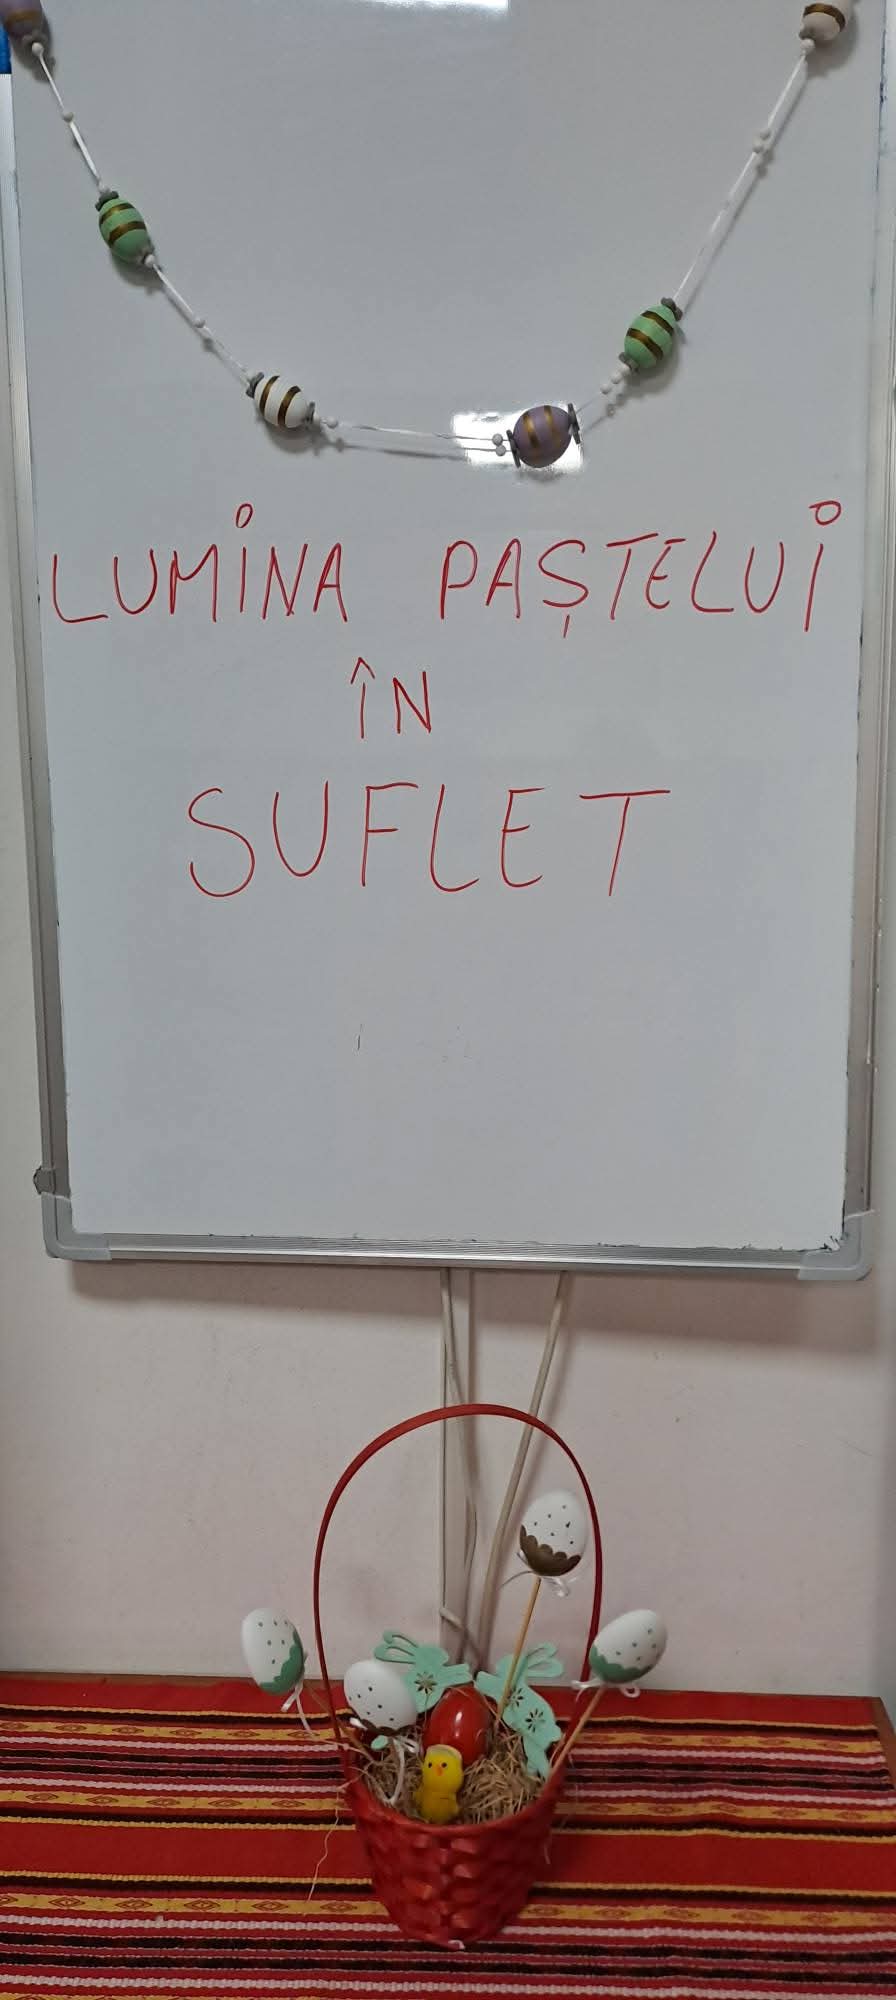 LUMINA PAȘTELUI
ÎN
SUFLET